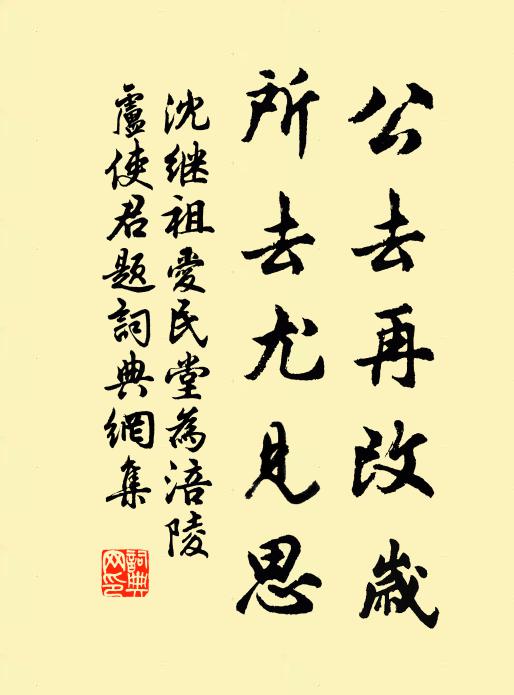 公去再改歲
所去尤見思
沈继祖愛民堂為涪陵
盧使君题詞典網集
詞典网印